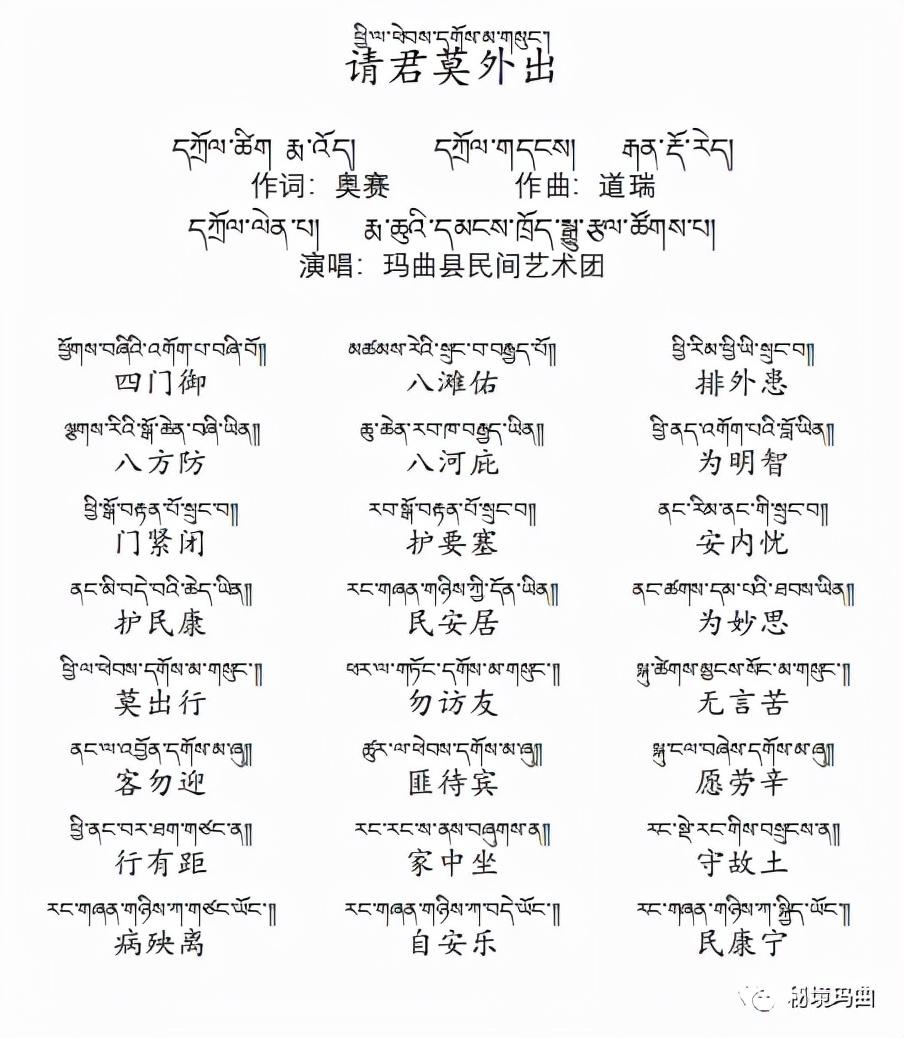 ཕྱི་ལ་ཕེབས་དགོས་མ་གསུང་།
请君莫外出
དཀྲོལ་ཚིག རྨ་འོད། དཀྲོལ་གདངས། རྒན་རྡོ་རེད།
作词：奥赛 作曲：道瑞
དཀྲོལ་ལེན་པ། རྨ་ཆུའི་དམངས་ཁྲོད་སྒྱུ་རྩལ་ཚོགས་པ།
演唱：玛曲县民间艺术团
ཕྱོགས་བཞིའི་འགོག་པ་བཞི་བོ།།
四门御
ལྕགས་རིའི་སྒོ་ཆེན་བཞི་ཡིན།།
八方防
ཕྱི་སྒོ་བརྟན་པོ་སྲུང་བ།།
门紧闭
ནང་མི་བདེ་བའི་ཆེད་ཡིན།།
护民康
ཕྱི་ལ་ཕེབས་དགོས་མ་གསུང་།།
莫出行
ནང་ལ་འབྱོན་དགོས་མ་ཞུ།།
客勿迎
ཕྱི་ནང་བར་ཐག་གཙང་ན།།
行有距
རང་གཞན་གཉིས་ཀ་གཙང་ཡོང་།།
病殃离
མཚམས་རེའི་སྲུང་བ་བརྒྱད་པོ།།
八滩佑
ཆུ་ཆེན་རབ་ཁ་བརྒྱད་ཡིན།།
八河庇
རབ་སྒོ་བརྟན་པོ་སྲུང་བ།།
护要塞
རང་གཞན་གཉིས་ཀྱི་དོན་ཡིན།།
民安居
ཕར་ལ་གཏོང་དགོས་མ་གསུང་།།
勿访友
ཚུར་ལ་ཕེབས་དགོས་མ་ཞུ།།
匪待宾
རང་རང་ས་ནས་བཞུགས་ན།།
家中坐
རང་གཞན་གཉིས་ཀ་བདེ་ཡོང་།།
自安乐
ཕྱི་རིམ་ཕྱི་ཡི་སྲུང་བ།།
排外患
ཕྱི་ནད་འགོག་པའི་བློ་ཡིན།།
为明智
ནང་རིམ་ནང་གི་སྲུང་བ།།
安内忧
ནང་ཚགས་དམ་པའི་ཐབས་ཡིན།།
为妙思
སྐུ་ཚེགས་མྱངས་སོང་མ་གསུང་།།
无言苦
སྐུ་ངལ་བཞེས་དགོས་མ་ཞུ།།
愿劳辛
རང་སྡེ་རང་གིས་བསྲུངས་ན།།
守故土
རང་གཞན་གཉིས་ཀ་སྐྱིད་ཡོང་།།
民康宁
秘境玛曲